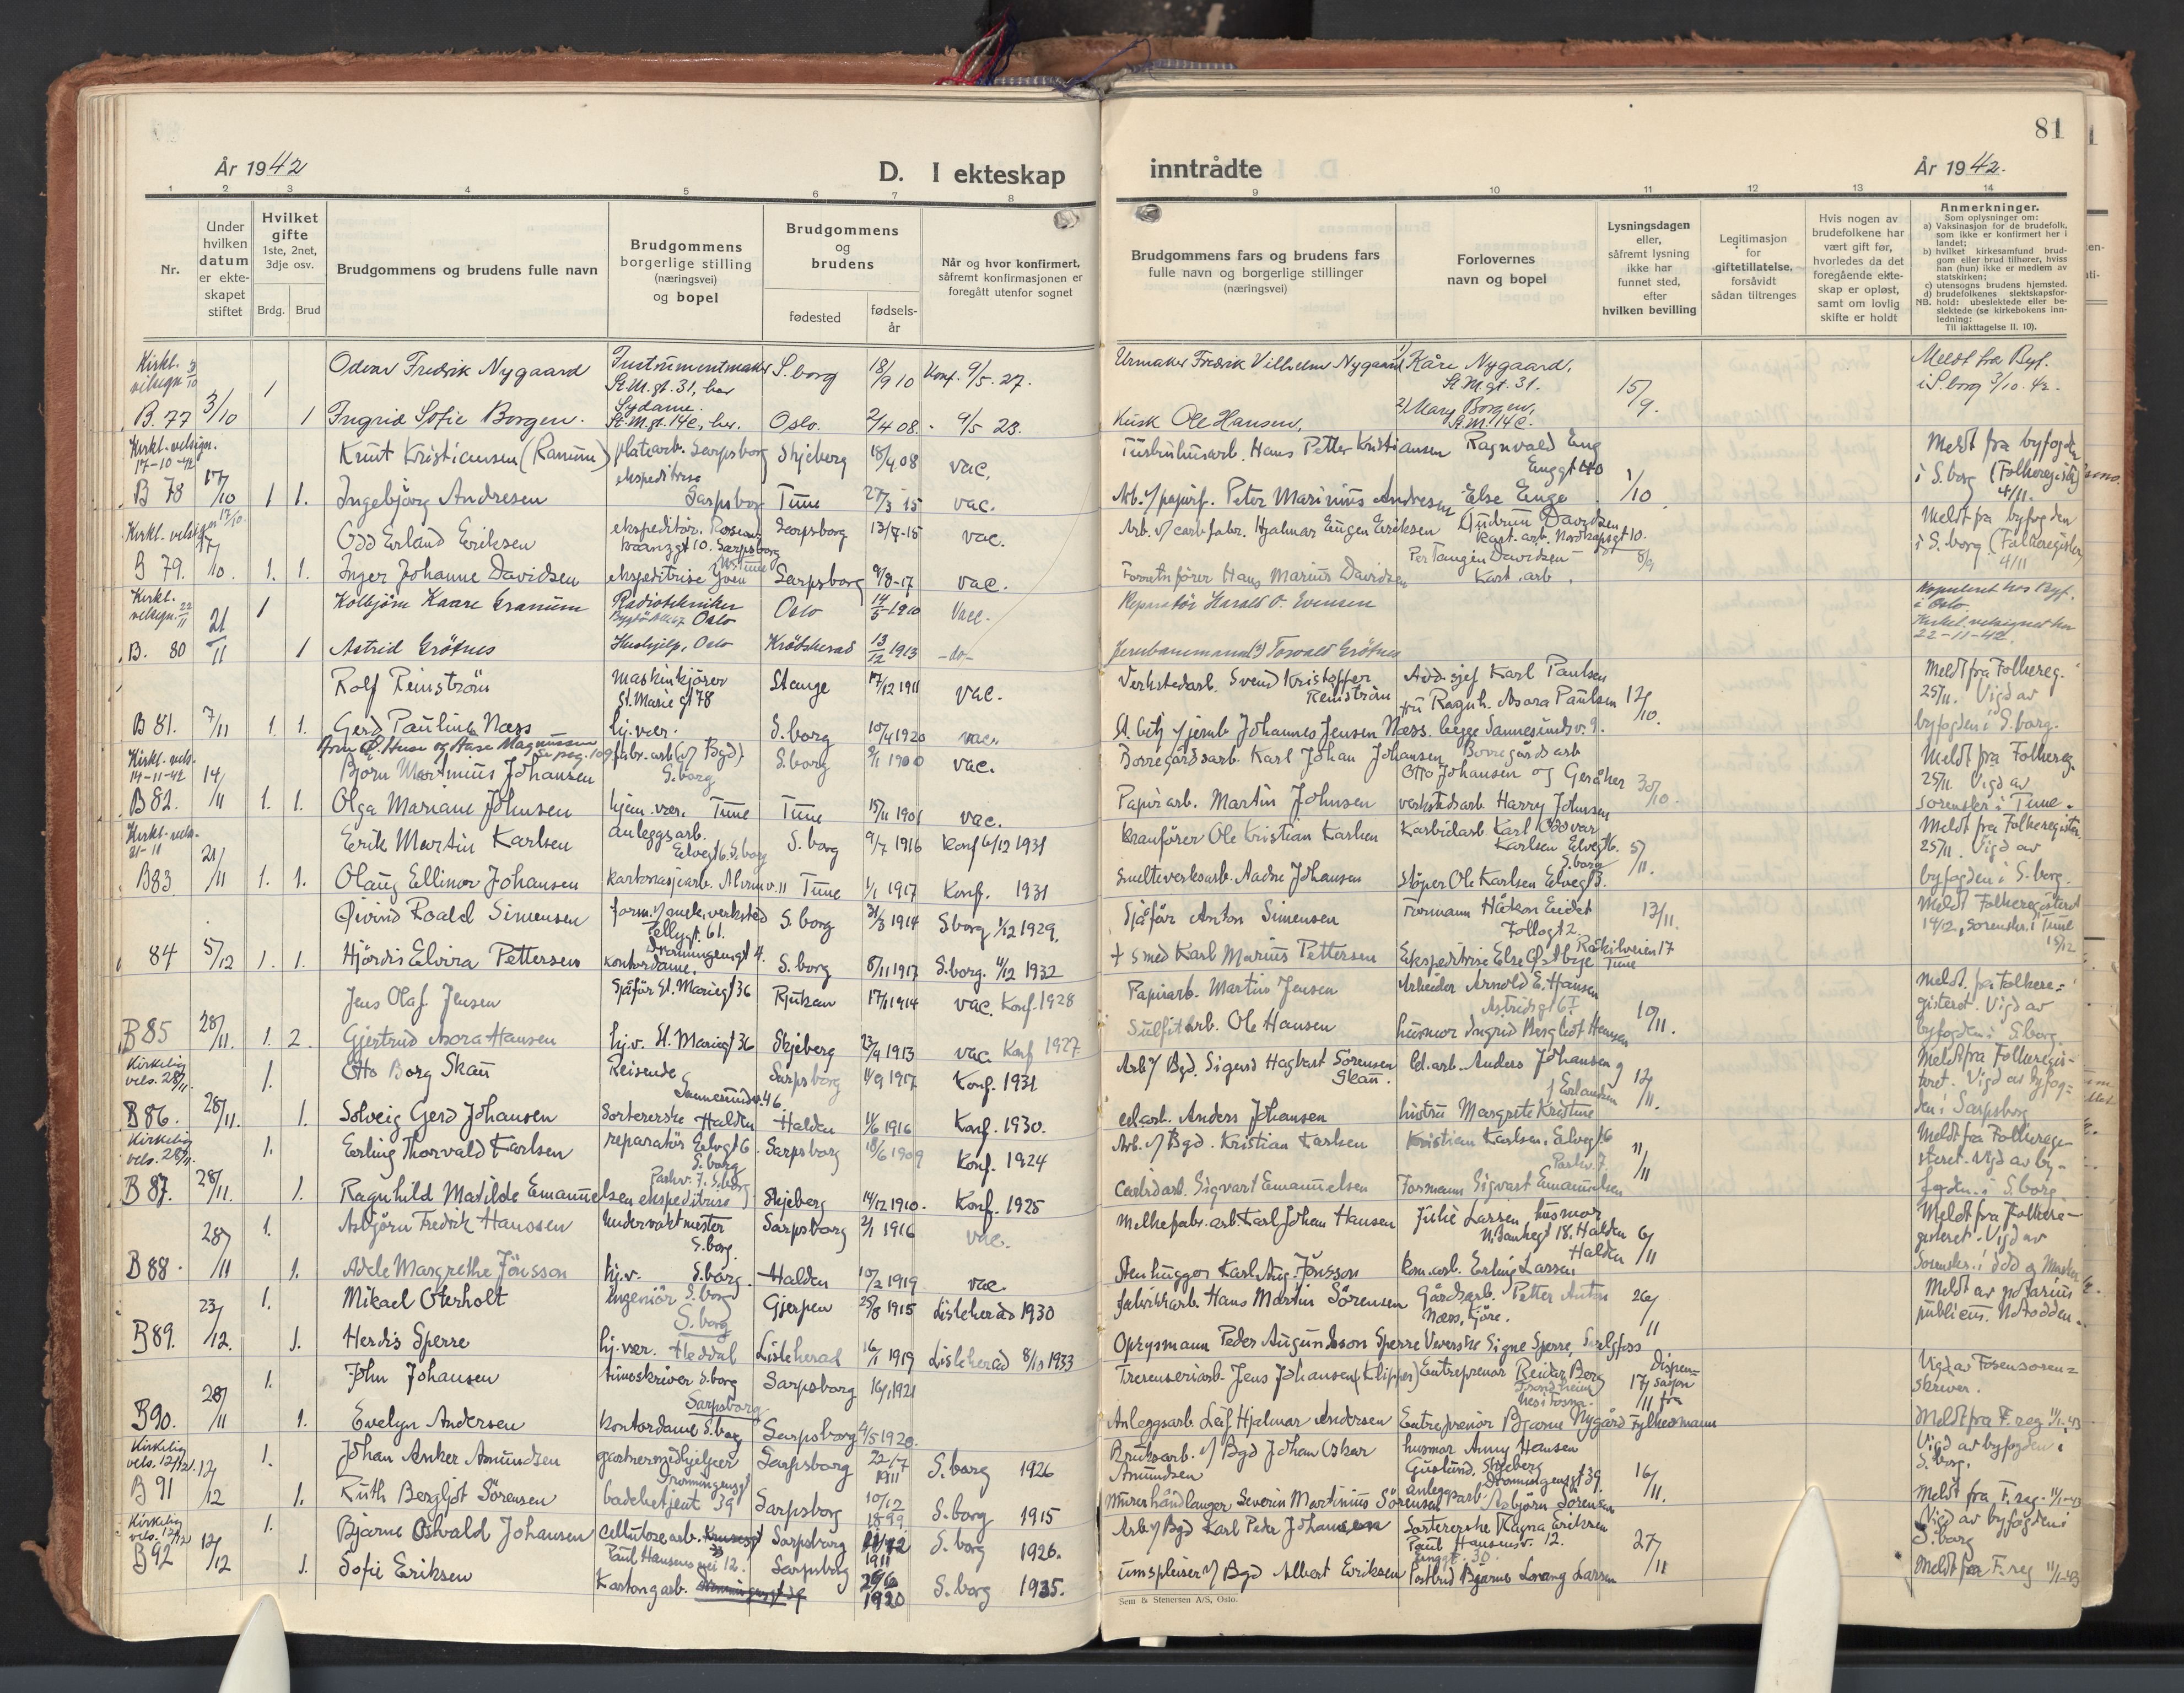 81
År 1942
D. I ekteskap
inntrådte
År 1942.
1 2 3 4 5 6 7 8 9 10 11 12 13 14
Nr.
Under hvilken datum er ekteskapet stiftet
Hvilket gifte
1ste, 2net, 3dje osv.
Brdg. Brud
Brudgommens og brudens fulle navn
Brudgommens borgerlige stilling (næringsvei) og bopel
Brudgommens og brudens
fødested
fødselsår
Når og hvor konfirmert, såfremt konfirmasjonen er foregått utenfor sognet
Brudgommens fars og brudens fars fulle navn og borgerlige stillinger (næringsvei)
Forlovernes navn og bopel
Lysningsdagen eller, såfremt lysning ikke har funnet sted, efter hvilken bevilling
Legitimasjon for giftetillatelse, forsåvidt sådan tiltrenges
Hvis nogen av brudefolkene har vært gift før, hvorledes da det foregående ekteskap er opløst, samt om lovlig skifte er holdt
Anmerkninger.
Som oplysninger om:
a) Vaksinasjon for de brudefolk, som ikke er konfirmert her i landet;
b) hvilket kirkesamfund brudgom eller brud tilhører, hviss han (hun) ikke er medlem av statskirken;
c) utensogns brudens hjemsted.
d) brudefolkenes slektskapsforhold: ubeslektede eller beslektede (se kirkebokens innledning:
NB. Til iakttagelse II. 10).
Kirkl. velsign. 3/10 1 Odvar Fredrik Nygaard Instrumentmaker St. M. gt. 31, her S.borg 18/9 10 Konf. 9/5. 27. Urmaker Fredrik Vilhelm Nygaard 1) Kåre Nygaard, St. M. gt. 31. 15/9. Meldt fra Byf. i S.borg 3/10. 42.
B. 77 3/10 1 Ingrid Sofie Borgen. Sydame. St. M. gt. 14c, her. Oslo. 2/4 08. 9/5 23. Kusk Ole Hansen, 2) Mary Borgen, St. M. 14c.
Kirkl. velsign. 17-10-42 Knut Kristiansen (Ranum) platearb. Sarpsborg Skjeberg 18/4 08 vac. Hans Petter Kristiansen Ragnvald Eng Enggt 40 1/10 Meldt fra byfogden i S.borg (Folkeregister) 4/11.
B 78 17/10 1 1. Ingebjörg Andresen ekspeditrise Sarpsborg Tune 27/3 15 vac. Arb. v/ papirf. Peter Marinius Andresen Else Enge
Kirkl. velsign. 17/10 Odd Erland Eriksen ekspeditör. Sarpsborg Sarpsborg vac. Arb. v/ carb. fabr. Hjalmar Eugen Eriksen Gudrun Davidsen kart. arb. Nordkapsgt 10. Meldt fra byfogden i S.borg (Folkeregister) 4/11
B 79. 17/10. 1. 1. Inger Johanne Davidsen ekspeditrise Sarpsborg 9/8-17 vac. Hans Marius Davidsen Per Tangen Davidsen Kart. arb. 8/9
Kirkl. velsign. 22/11 1 Kolbjörn Kaare Granum Radiotekniker Oslo Oslo 14/5 1910 Vacc. Reparatör Harald O. Evensen Kopulert hos Byf. i Oslo. Kirkel. velsignet her 22-11-42.
B. 80 21/11 1 Astrid Grötnes Hushjelp, Oslo Krödsherad 13/12 1913 -do- Jernbanemann Torvald Grötnes
Rolf Reinström Maskinkjörer St. Marie gt 78 Stange 17/12 1911 vac. Verkstedarb. Svend Kristoffer Reinström Karl Paulsen Meldt fra Folkereg. 25/11. Vigd av
B 81. 7/11 1. 1. Gerd Pauline Næss hj. vær. S.borg 10/4 1920 vac. Johannes Jensen Næss. begge Sannesundsv. 9. 12/10. byfogden i S.borg.
Kirkl. vels. 14-11-42 Björn Martinius Johansen fabr. arb (v/ Bgd) S.borg S.borg 9/1 1900 vac. Borregårdsarb. Karl Johan Johansen Borregårdsarb Otto Johansen og 30/10. Meldt fra Folkereg. 25/11. Vigd av
B 82. 14/11 1. 1. Olga Mariane Johnsen hjem. vær. Tune Tune 15/11 1901 vac. Papirarb. Martin Johnsen verkstedsarb Harry Johnsen sorenskr. i Tune.
Kirkl. vels. 21-11 Erik Martin Karlsen anleggsarb. Elvegt 6. S.borg S.borg 9/7 1916 Konf 6/12 1931 kranförer Ole Kristian Karlsen Karbidarb. Karl Oddvar Karlsen Elvegt 6. S.borg 5/11. Meldt fra Folkeregister 25/11. Vigd av
B83 21/11 1. 1. Olaug Ellinor Johansen kartonasjearb. Alvimv. 11 Tune 1/1 1917 Konf. 1931 Smelteverksarb. Aadne Johansen Stöper Ole Karlsen Elvegt 3. byfogden i S.borg.
Øivind Roald Simensen form. v/ mek. verksted S.borg 31/3 1914 S.borg 1/12 1929. Sjåför Anton Simensen Formann Håkon Follogt 2. 13/11. Meldt Folkeregisteret 14/12, sorenskr. i Tune 15/12
84 5/12 1. 1. Hjördis Elvira Pettersen Dronningensgt 4. kontordame. S.borg 8/11 1917 S.borg. 4/12 1932 + Smed Karl Marius Pettersen Ekspeditrise Else Østbye Tune
Jens Olaf Jensen Sjåför St. Mariegt 36 Rjukan 17/1 1914 vac. Konf. 1928 Papirarb. Martin Jensen Arbeider Arnold E. Hansen Astridsgt 6 10/11. Meldt. fra Folkeregisteret. Vigd av
B 85 28/11. 1. 2. Gjertrud Asora Hansen hj. v. St. Mariegt 36 Skjeberg 23/9 1913 vac. Konf 1927. Sulfitarb. Ole Hansen husmor Ingrid Bergliot Hansen byfogden i S.borg.
Kirkelig vels. 28/11. 1. Otto Borg Skau Reisende Sannesundv. 46. Sarpsborg 11/9 1917 Konf. 1931 Arb v/ Bgd. Sigurd Hagbart Sörensen Skau. Anders Johansen 12/11. Meldt fra Folkeregisteret. Vigd av byfog-
B 86. 28/11. 1. Solveig Gerd Johansen Sortererske Halden Halden 1/6 1916 Konf. 1930. Anders Johansen hustru Margrete Kristine den i Sarpsborg
Kirkelig vels. 28/11. 1. Erling Thorvald Karlsen reparatör Elvegt 6 S.borg Sarpsborg 18/6 1909 Konf. 1924 Arb. v/ Bgd. Kristian Karlsen Kristian Karlsen. Elvegt 6 11/11 Meldt fra Folkeregisteret. Vigd av by-
B 87. 28/11. 1. Ragnhild Matilde Emanuelsen ekspeditrise Parkv. 7. S.borg Skjeberg 14/12 1910. Konf. 1925 Carbidarb. Sigvart Emanuelsen Formann Sigvart Emanuelsen Parkv. 7. fogden i S.borg
1. Asbjörn Fredrik Hanssen Undervaktmester S.borg Sarpsborg 2/1 1916 vac. Melkefabr. arb Karl Johan Hansen Julie Larsen husmor Halden 6/11 Meldt fra Folkeregisteret. Vigd av
B 88. 28/11 1. Adele Margrethe Jönsson hj. v. S.borg. Halden 10/2 1919 vac. Stenhugger Karl Aug. Jönsson kom. arb. Erling Larsen Halden
1. Mikael Oterholt Ingeniör S.borg Gjerpen 25/8 1915 Lisleherad 1930 fabrikkarb. Hans Martin Sörensen Gårdsarb. Petter Anton Næss, Kjöre. 26/11 Meldt av notarius publicus. Notodden.
B 89. 23/12. 1. Herdis Sperre hj. vær. Heddal Lisleherad 16/1 1919 Lisleherad 8/10 1933 Opsynsmann Peder Augundsson Sperre Veverske Signe Sperre,
1. John Johansen timeskriver S.borg Sarpsborg 16/1 1921 Jens Johansen (Klipper) Entreprenør Reidar Berg Trondheim 17/11 Dispensasjon fra Fylkesmann Vigd av Fosen sorenskriver.
B90. 28/11 1. Evelyn Andersen Kontordame S.borg Sarpsborg 4/5 1920. Anleggsarb. Leif Hjalmar Andersen Entreprenør Bjarne Nygård Meldt fra F. reg 11/1-43
Kirkelig vels. 12/12. 1. Johan Anker Amundsen gartnermedhjelper Sarpsborg 22/7 1911 S.borg 1926 Bruksarb. v/ Bgd Johan Oskar Amundsen husmor Anny Hansen Guslund, Skjeberg 16/11. Vigd av byfogden i S.borg.
B 91 12/12 1. Ruth Bergljot Sörensen badebetjent Dronningensgt 39 Sarpsborg 10/12 1899. S.borg 1915 Murerhåndlanger Severin Martinius Sörensen anleggsarb. Asbjörn Sörensen Dronningensgt 39. Meldt fra F. reg. 11/1-43
Kirkelig vels. 12/12 1. Bjarne Osvald Johansen Cellulosearb. Paul Hansens vei 12. Sarpsborg 1911 S.borg 1926. Arb v/ Bgd Karl Peder Johansen Sortererske Ragna Eriksen Paul Hansensv. 12. 27/11 Vigd av byfogden i S.borg
B 92 12/12 1. Sofie Eriksen Kartongarb. Sarpsborg 29/6 1920 S.borg 1935. v/ Bgd Albert Eriksen Enggt. 30. Postbud Bjarne Lorang Larsen Meldt fra F. reg 11/1-43
Sem & Stenersen A/S, Oslo.